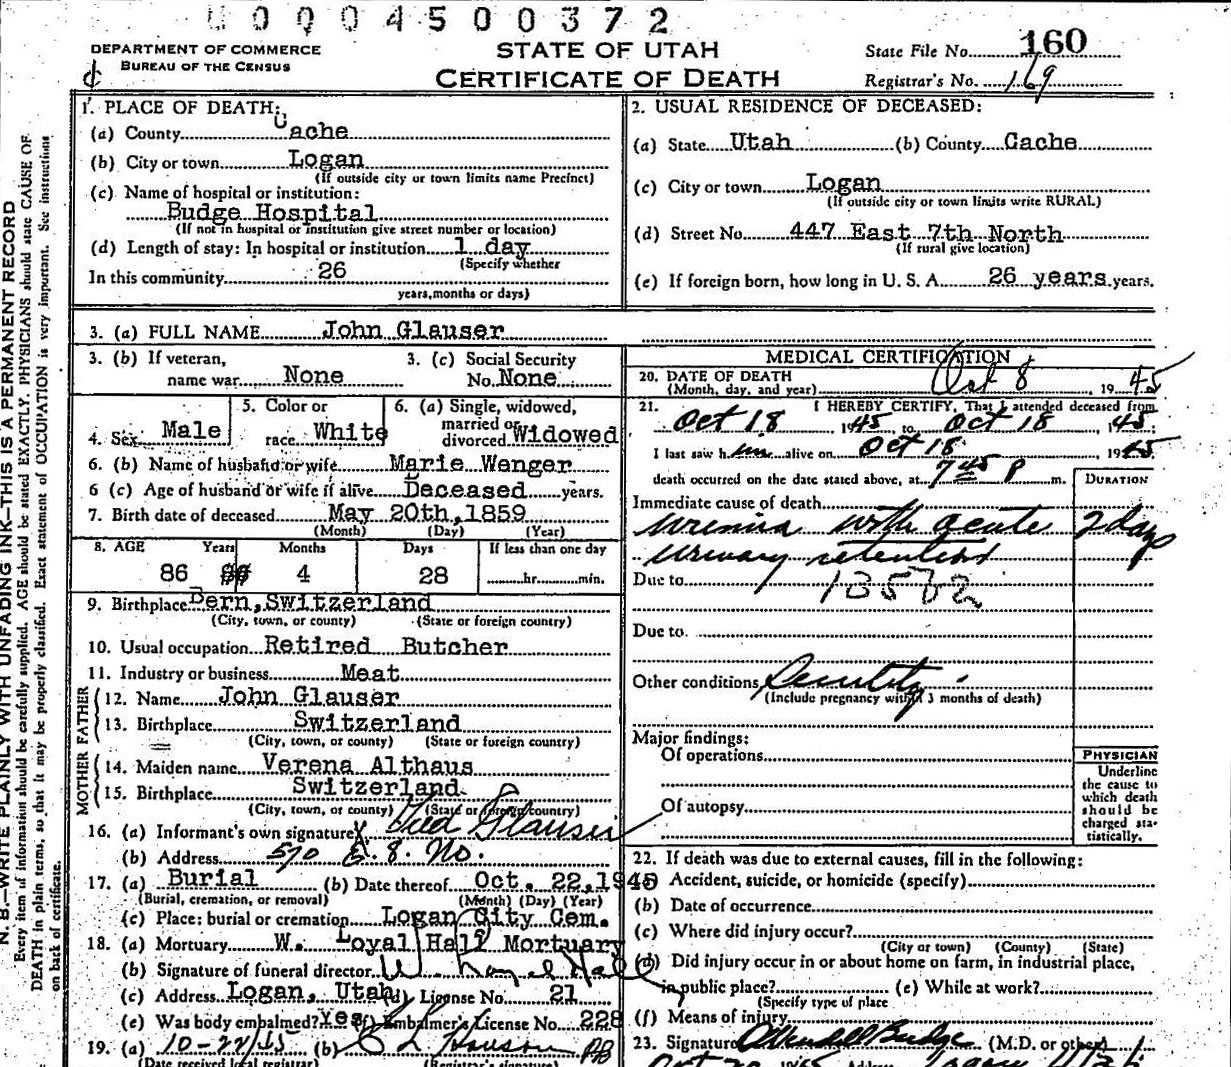 0000450 0372
DEPARTMENT OF COMMERCE
BUREAU OF THE CENSUS
STATE OF UTAH
CERTIFICATE OF DEATH
State File No. 160
Registrar's No. 169
N. B.—WRITE PLAINLY WITH UNFADING INK—THIS IS A PERMANENT RECORD
Every item of information should be carefully supplied. AGE should be stated EXACTLY. PHYSICIANS should state CAUSE OF
DEATH in plain terms, so that it may be properly classified. Exact statement of OCCUPATION is very important. See instructions
on back of certificate.
1. PLACE OF DEATH:
(a) County Cache
(b) City or town Logan
(If outside city or town limits name Precinct)
(c) Name of hospital or institution:
Budge Hospital
(If not in hospital or institution give street number or location)
(d) Length of stay: In hospital or institution 1 day
(Specify whether
In this community 26
years, months or days)
2. USUAL RESIDENCE OF DECEASED:
(a) State Utah (b) County Cache
(c) City or town Logan
(If outside city or town limits write RURAL)
(d) Street No. 447 East 7th North
(If rural give location)
(e) If foreign born, how long in U. S. A. 26 years years.
3. (a) FULL NAME John Glauser
3. (b) If veteran, 3. (c) Social Security
name war None No. None
4. Sex Male
5. Color or
race White
6. (a) Single, widowed,
married or
divorced Widowed
6. (b) Name of husband or wife Marie Wenger
6 (c) Age of husband or wife if alive Deceased years.
7. Birth date of deceased May 20th, 1859
(Month) (Day) (Year)
8. AGE Years Months Days If less than one day
86 4 28 hr. min.
9. Birthplace Bern, Switzerland
(City, town, or county) (State or foreign country)
10. Usual occupation Retired Butcher
11. Industry or business Meat
FATHER
12. Name John Glauser
13. Birthplace Switzerland
(City, town, or county) (State or foreign country)
MOTHER
14. Maiden name Verena Althaus
15. Birthplace Switzerland
(City, town, or county) (State or foreign country)
16. (a) Informant's own signature X Fred Glauser
(b) Address 590 E. 8. No.
17. (a) Burial (b) Date thereof Oct. 22, 1945
(Burial, cremation, or removal) (Month) (Day) (Year)
(c) Place: burial or cremation Logan City Cem.
18. (a) Mortuary W. Loyal Hall Mortuary
(b) Signature of funeral director W Loyal Hall
(c) Address Logan, Utah (d) License No. 21
(e) Was body embalmed? Yes (f) Embalmer's License No. 228
19. (a) 10-22/45 (b)
(Date received local registrar) (Registrar's signature)
MEDICAL CERTIFICATION
20. DATE OF DEATH
(Month, day, and year) Oct 8, 1945
21. I HEREBY CERTIFY, That I attended deceased from
Oct 18, 1945, to Oct 18, 1945;
I last saw him alive on Oct 18 1945
death occurred on the date stated above, at 7 45 P m.
DURATION
Immediate cause of death
uremia with acute 2 days
urinary retention
Due to
Due to
Other conditions Senility
(Include pregnancy within 3 months of death)
Major findings:
Of operations
Of autopsy
PHYSICIAN
Underline
the cause to
which death
should be
charged sta-
tistically.
22. If death was due to external causes, fill in the following:
(a) Accident, suicide, or homicide (specify)
(b) Date of occurrence
(c) Where did injury occur?
(City or town) (County) (State)
(d) Did injury occur in or about home on farm, in industrial place,
in public place? (e) While at work?
(Specify type of place
(f) Means of injury
23. Signature O Wendell Budge (M.D. or other)
Address Logan Utah